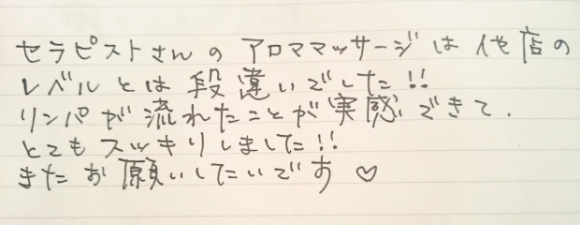 セラピストさんのアロママッサージは他店の
レベルとは段違いでした!!
リンパが流れたことが実感できて、
とてもスッキリしました!!
またお願いしたいです♡